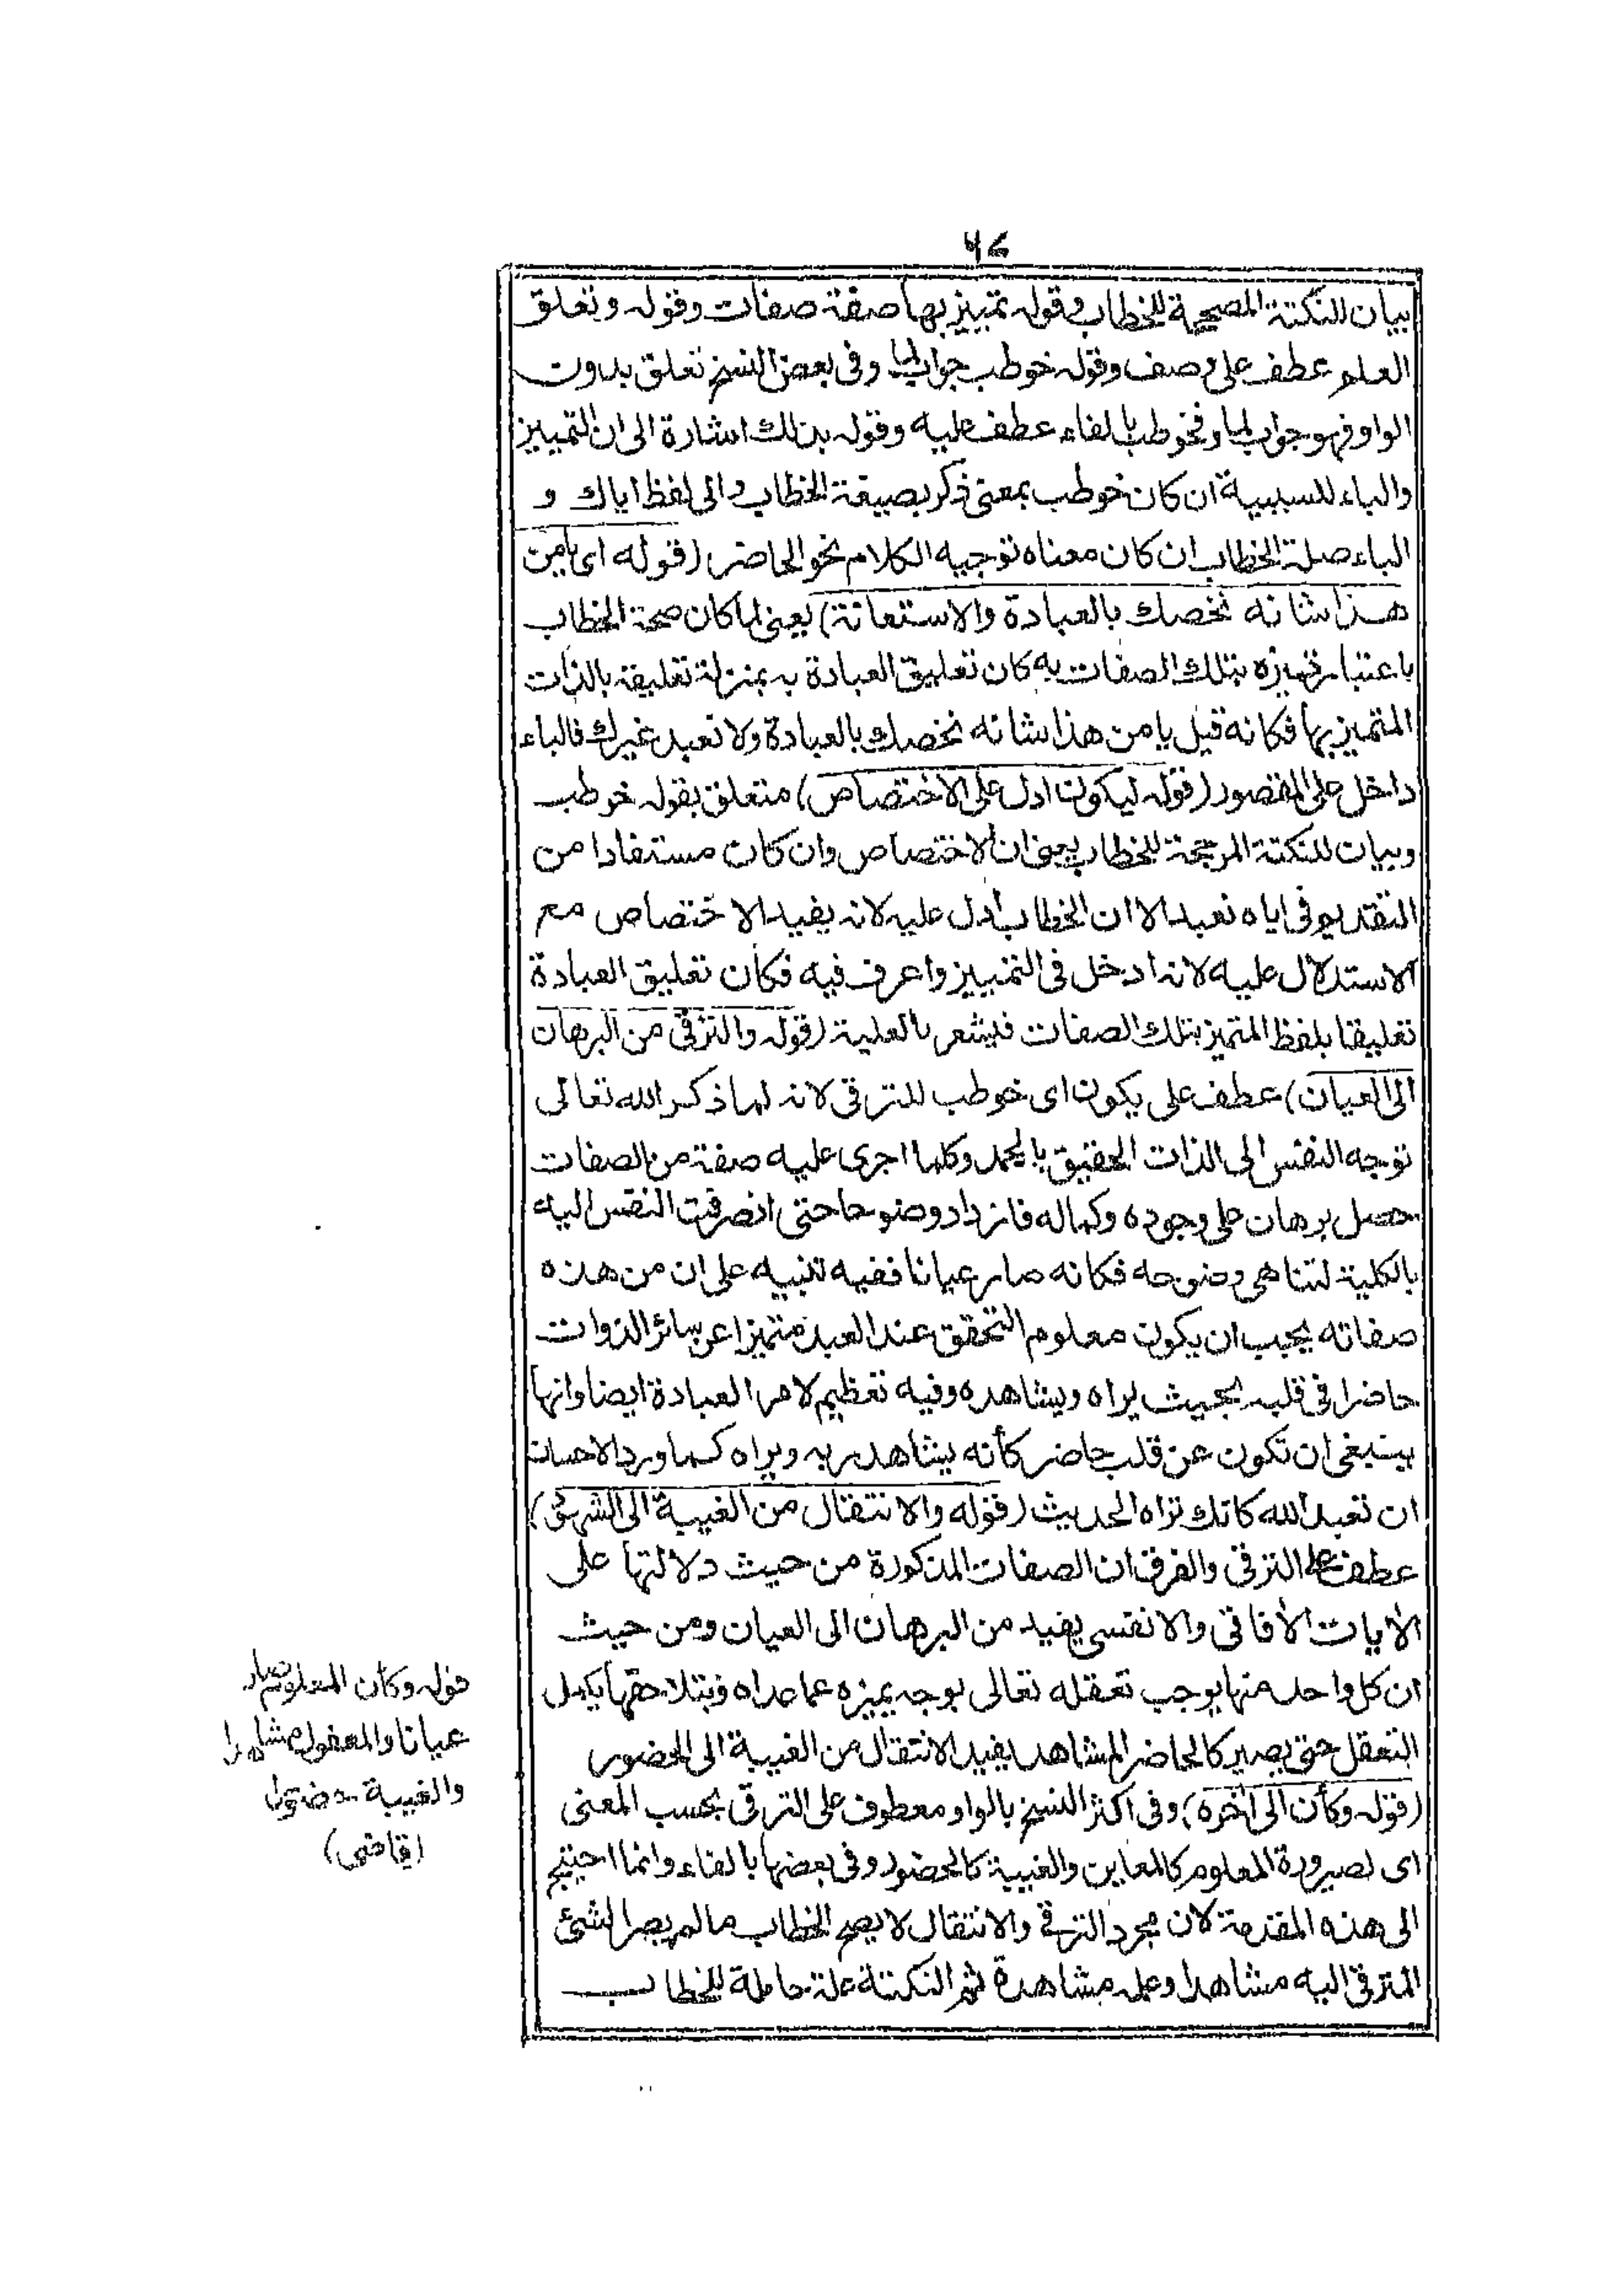 ٦٧
بيان للنكتة المصححة للخطاب وقوله تميز بها صفة صفات وقوله وتعلق
العلم عطف على وصف وقوله خوطب جواب لما وفى بعض النسخ تعلق بدون
الواو فهو جواب لما وفخوطب بالفاء عطف عليه وقوله بذلك اشارة الى ان التمييز
والباء للسببية ان كان خوطب بمعنى ذكر بصيغة الخطاب والى لفظ اياك و
الباء صلة الخطاب ان كان معناه توجيه الكلام نحو الحاضر (قوله اى يا من
هذا شانه نخصك بالعبادة والاستعانة) يعنى لما كان صحة الخطاب
باعتبار تميزه بتلك الصفات به كان تعليق العبادة به بمنزلة تعليقه بالذات
المتميز بها فكانه قيل يا من هذا شانه نخصك بالعبادة ولا نعبد غيرك فالباء
داخل على المقصور (قوله ليكون ادل على الاختصاص) متعلق بقوله خوطب
وبيان للنكتة المرجحة للخطاب يعنى ان الاختصاص وان كان مستفادا من
التقديم فى اياه نعبد الا ان الخطاب ادل عليه لانه يفيد الاختصاص مع
الاستدلال عليه لانه ادخل فى التمييز واعرف فيه فكان تعليق العبادة
تعليقا بلفظ المتميز بتلك الصفات فيشعر بالعلية (قوله والترقى من البرهان
الى العيان) عطف على يكون اى خوطب للترقى لانه لما ذكر الله تعالى
توجه النفس الى الذات الحقيق بالحمد وكلما اجرى عليه صفة من الصفات
حصل برهان على وجوده وكماله فازداد وضوحا حتى انصرفت النفس اليه
بالكلية لتناهى وضوحه فكانه صار عيانا ففيه تنبيه على ان من هذه
صفاته يجب ان يكون معلوم التحقق عند العبد متميزا عن سائر الذوات
حاضرا فى قلبه بحيث يراه ويشاهده وفيه تعظيم لامر العبادة ايضا وانها
ينبغى ان تكون عن قلب حاضر كأنه يشاهد ربه ويراه كما ورد الاحسان
ان تعبد الله كانك تراه الحديث (قوله والانتقال من الغيبة الى الشهود)
عطف على الترقى والفرق ان الصفات المذكورة من حيث دلالتها على
الأيات الأفاقى والانفسى يفيد من البرهان الى العيان ومن حيث
ان كل واحد منها يوجب تعقله تعالى بوجه يميزه عما عداه وبتلاحقها يكمل
التعقل حتى يصير كالحاضر المشاهد يفيد الانتقال من الغيبة الى الحضور
(قوله وكأن الى آخره) وفى اكثر النسخ بالواو معطوف على الترقى بحسب المعنى
اى لصيرورة المعلوم كالمعاين والغيبة كالحضور وفى بعضها بالفاء وانما احتيج
الى هذه المقدمة لان مجرد الترقى والانتقال لا يصح الخطاب ما لم يصر الشئ
المترقى اليه مشاهدا وعلمه مشاهدة ثم النكتة علة حاملة للخطاب
قوله وكأن المعلوم صار
عيانا والمعقول مشاهدا
والغيبة حضورا
(قاضى)